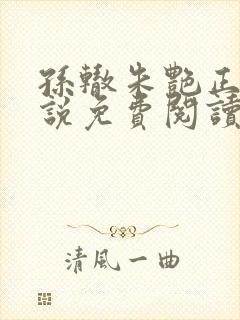 孫轍朱艷正
說免費閱讀
清風一曲